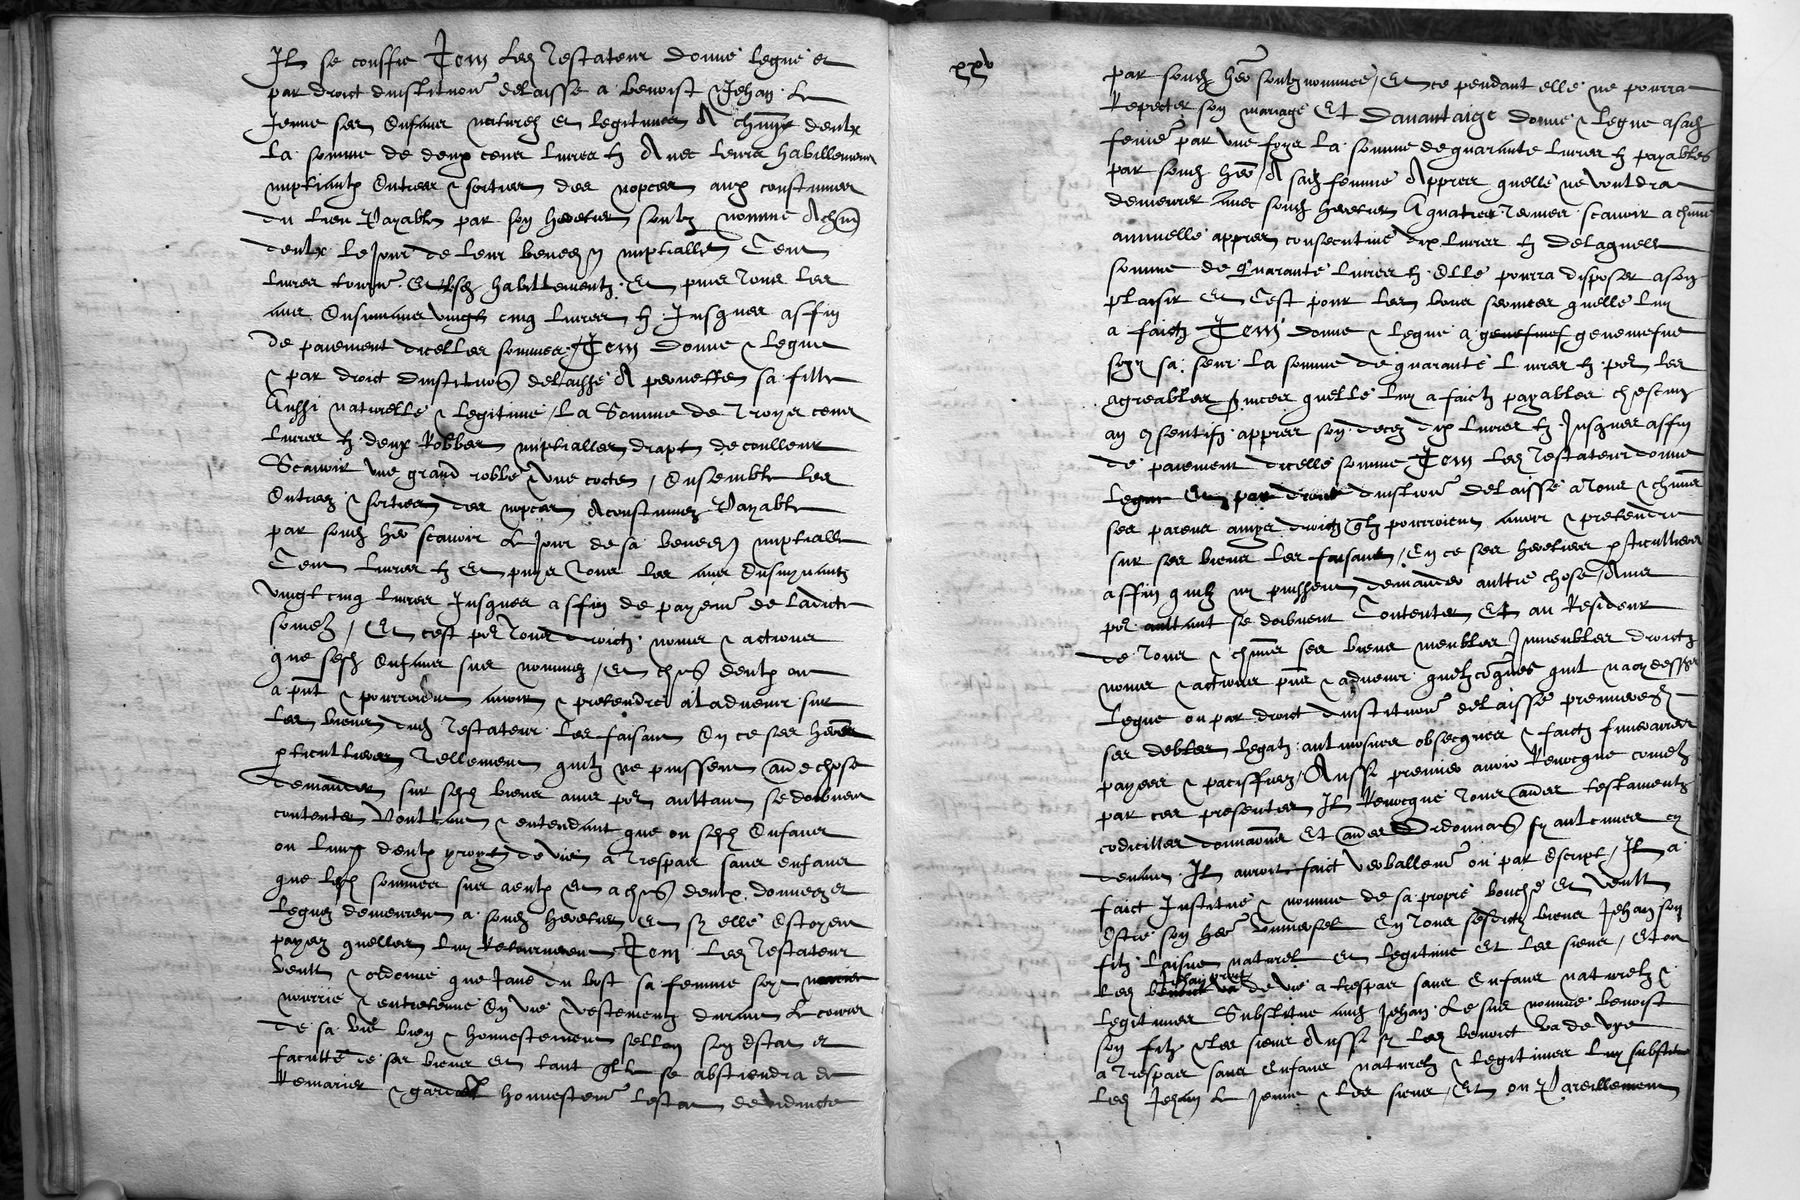 Il se conffie Item led testateur donne legue et
par droict dinstitution delaisse a benoist & Jehan le
Jeune ses enfans naturelz et legitimes A chung deulx
la somme de deux cens livres tz Avec leurs habillemens
nuptiaulx entrees & sorties des nopces aux coustumes
du lieu Payables par son heretier soubz nomme A chun
deulx le Jour de leur bened on nuptialle Cent
livres tourn Et lesd habillementz Et puis tous les
ans ensuivans vingt cinq livres tz Jusques a ffin
de paiement dicelles sommes / Item donne & legue
& par droict dinstitution delaisse A pernette sa fille
Aussi naturelle & legitime / la Somme de troys cens
livres tz deux Robbes nuptialles drapt de coulleur
Scavoir une grand robbe & une cotte / Ensemble les
Entrees & sorties des nopces Acoustumez Payable
par soud her scavoir le Jour de sa bened on nuptialle
Cent livres tz Et puys tous les ans ensuyvantz
vingt cinq livres Jusques a ffin de payem de ladicte
some / Et cest por tous droictz noms & actions
que sesd Enfans sus nommez / Et chun deulx ont
a pnt & pourroient avoir & pretendre a ladvenir sur
les biens dud testateur les faisant En ce ses heres
pticulliers Tellement quilz ne puissent aude chose
demander sur sesd biens ains por aultant se doibvent
contenter Voullant & entendant que ou sesd Enfans
ou lung deulx yroyent de vie a trespas sans enfans
que lesd sommes sus a eulx Et a chun deulx donnees et
leguees demeurent a soud heretier Et sy elle estoyent
payez quelles luy Retournent Item led testateur
veult & ordonne que Jane du bost sa femme soyt
nourrie & entretenue En vie & vestementz durant le cours
de sa vie bien & honnestement sellon son estat et
faculte de ses biens Et tant qlle se abstiendra de
Remarier & gardera honnestem lestat de viduite
xxv
par soud her soubz nomme / Et ce pendant elle ne pourra
Repeter son mariage Et davantaige donne & legue a sad
feme par une foys la somme de quarante livres tz payables
par soud her A sad femme Appres quelle ne vouldra
demeurer avec soud heretier A quatre termes scavoir a chune
annuelle appres consecutive dix livres tz de laquelle
somme de Quarante livres tz Elle pourra disposer a son
plaisir Et Cest pour les bons services quelle luy
a faictz Item donne & legue a genemefue
soyr sa seur la somme de quarante livres tz por les
agreables services quelle luy a faictz payables chescung
an on sentif appres son deces dix livres tz Jusques a ffin
de paiement dicelle somme Item led testateur donne
legue Et par droict dinstitution delaisse a tous & chuns
ses parens amys droictz qlz pourroient avoir & pretendre
sur ses biens les faisant / En ce ses heretiers pticulliers
affin quilz ny puissent demander aultre chose / Ains
por aultant se doibvent Contenter Et au Resideur
de tous & chuns ses biens meubles Immeubles droictz
noms & actions pns & advenir quelzconques quil na cy dessus
legue ou par droict dinstitution delaisse premieremt
ses debtes legatz aulmosnes obseques & faictz funeraires
payees & paciffiez / Aussi premier avoir Revocque comme
par ces presentes Il Revocque tous aues testamentz
codicilles donnaons Et aues Ordonnans sy aulcunes cy
devant Il avroit faict verballemt ou par escript / Il a
faict Institue & nomme de sa propre bouche Et veult
Estre son her universel En tous sesdictz biens Jehan son
filz laisne naturel Et legitime Et les siens / Et ou
Led Jehan yroit de vie a trespas sans enfans naturelz &
legitimes Substitue aud Jehan le sus nomme benoist
son filz & les siens Aussi sy led benoict va de vye
a trespas sans enfans naturelz & legitimes luy substitue
led Jehan le Jeune & les siens / Et ou Pareillement